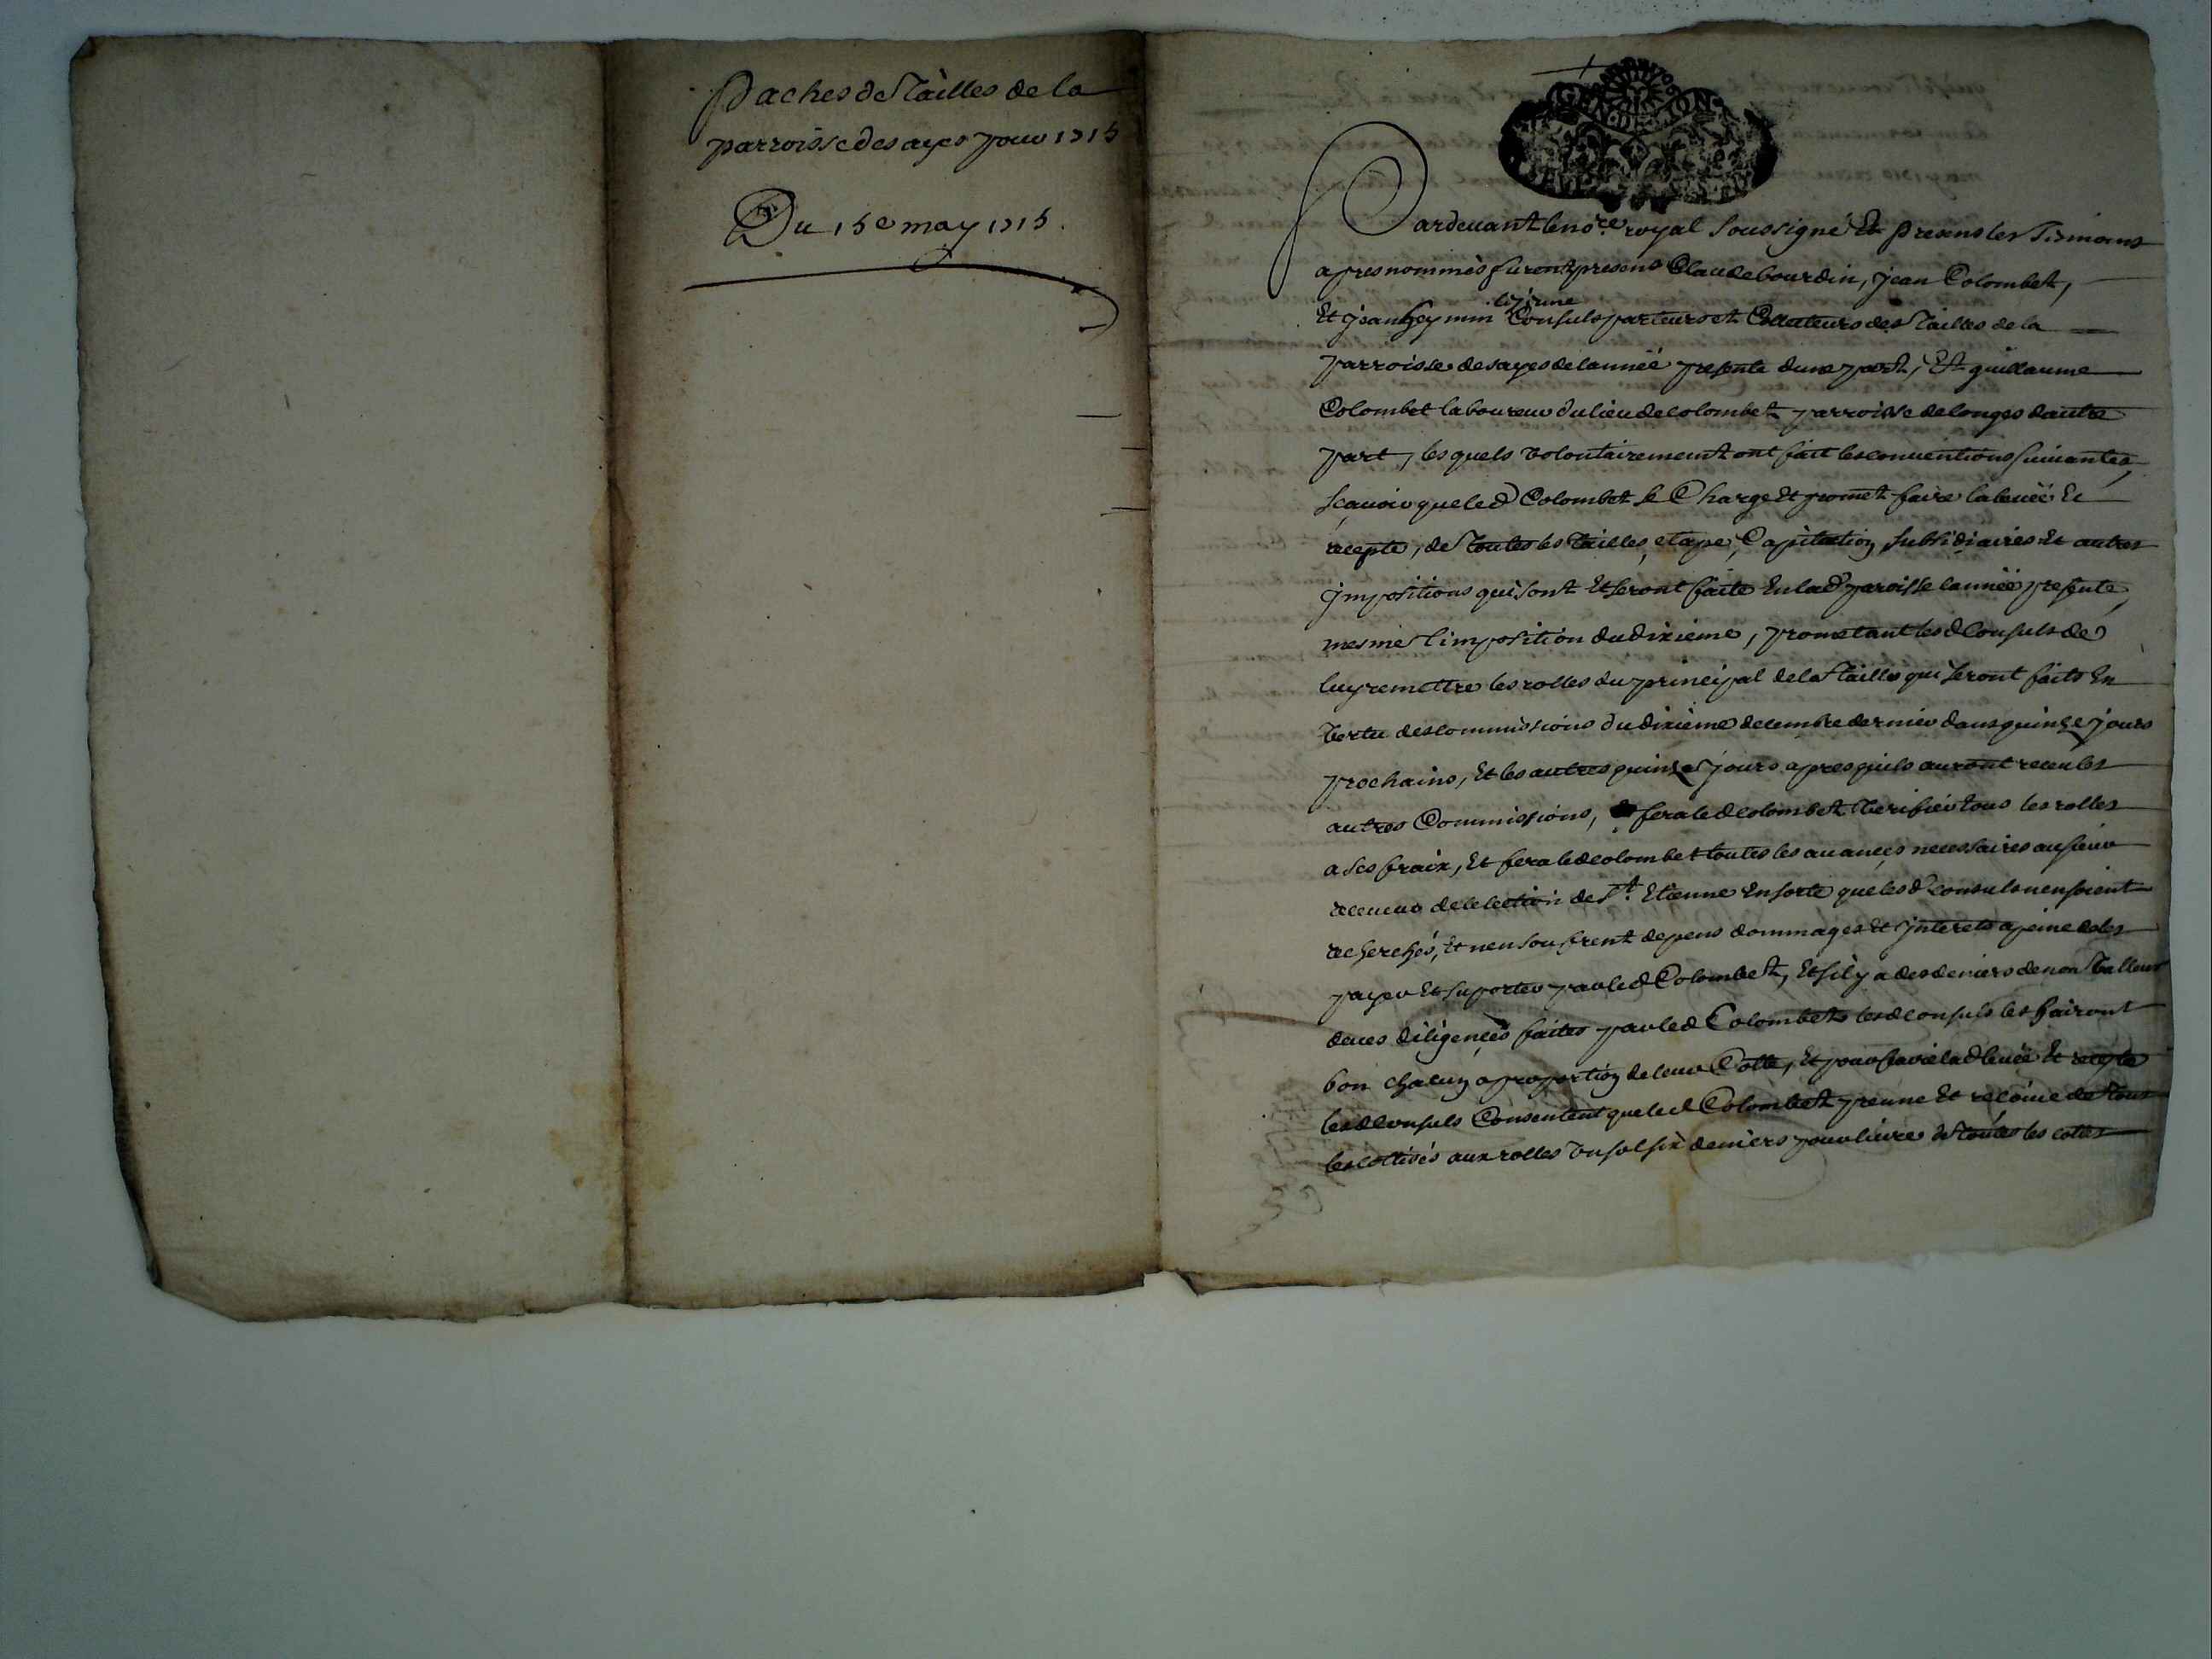 Paches de Tailles de la
parroisse des ayes pour 1715
Du 15e may 1715.
GENERALITE
LYON
Pardeuant le nore royal soussigné Et presens les Tesmoins
apres nommés furent presens Claude bourdin, jean Colombet,
le jeune
Et jean Consuls parteurs et Collecteurs des Tailles de la
parroisse desayes de lannéé presente dune part, Et guillaume
Colombet laboureur du lieu de colombet parroisse de longes dautre
part, les quels volontairement ont fait les conuentions suiuantes,
scauoir que led Colombet se Charge Et promet faire la leuéé Et
recepte, de Toutes les Tailles, etape, Capitation subsidiaires Et autres
jmpositions qui sont Et seront faite En lad paroisse lannéé presente,
mesme l'imposition du dixieme, prometant lesd Consuls de
luy remettre les rolles du principal de la Taille qui seront faits En
Vertu des commissions du dixieme decembre dernier dans quinze jours
prochains, Et les autres quinze jours apres quils auront receu les
autres Commissions, fera led colombet Verifier tous les rolles
a ses fraix, Et fera led colombet toutes les auances necessaires au sieur
receueur de lelection de St. Etienne En sorte que lesd consuls nen soient
recherchés, Et nen soufrent depens dommages Et jnterets a peine de les
payer Et suporter par led Colombet, Et sil y a des deniers de non Valleur
deues diligences faites par led Colombet lesd consuls les fairont
bon chacun a proportion de leur Cotte, Et pour faire lad leuéé Et recepte
lesd Consuls Consentent que led Colombet prenne Et recoiue de Tous
les cottisés aux rolles Un sol six deniers pour liure de toutes les cottes